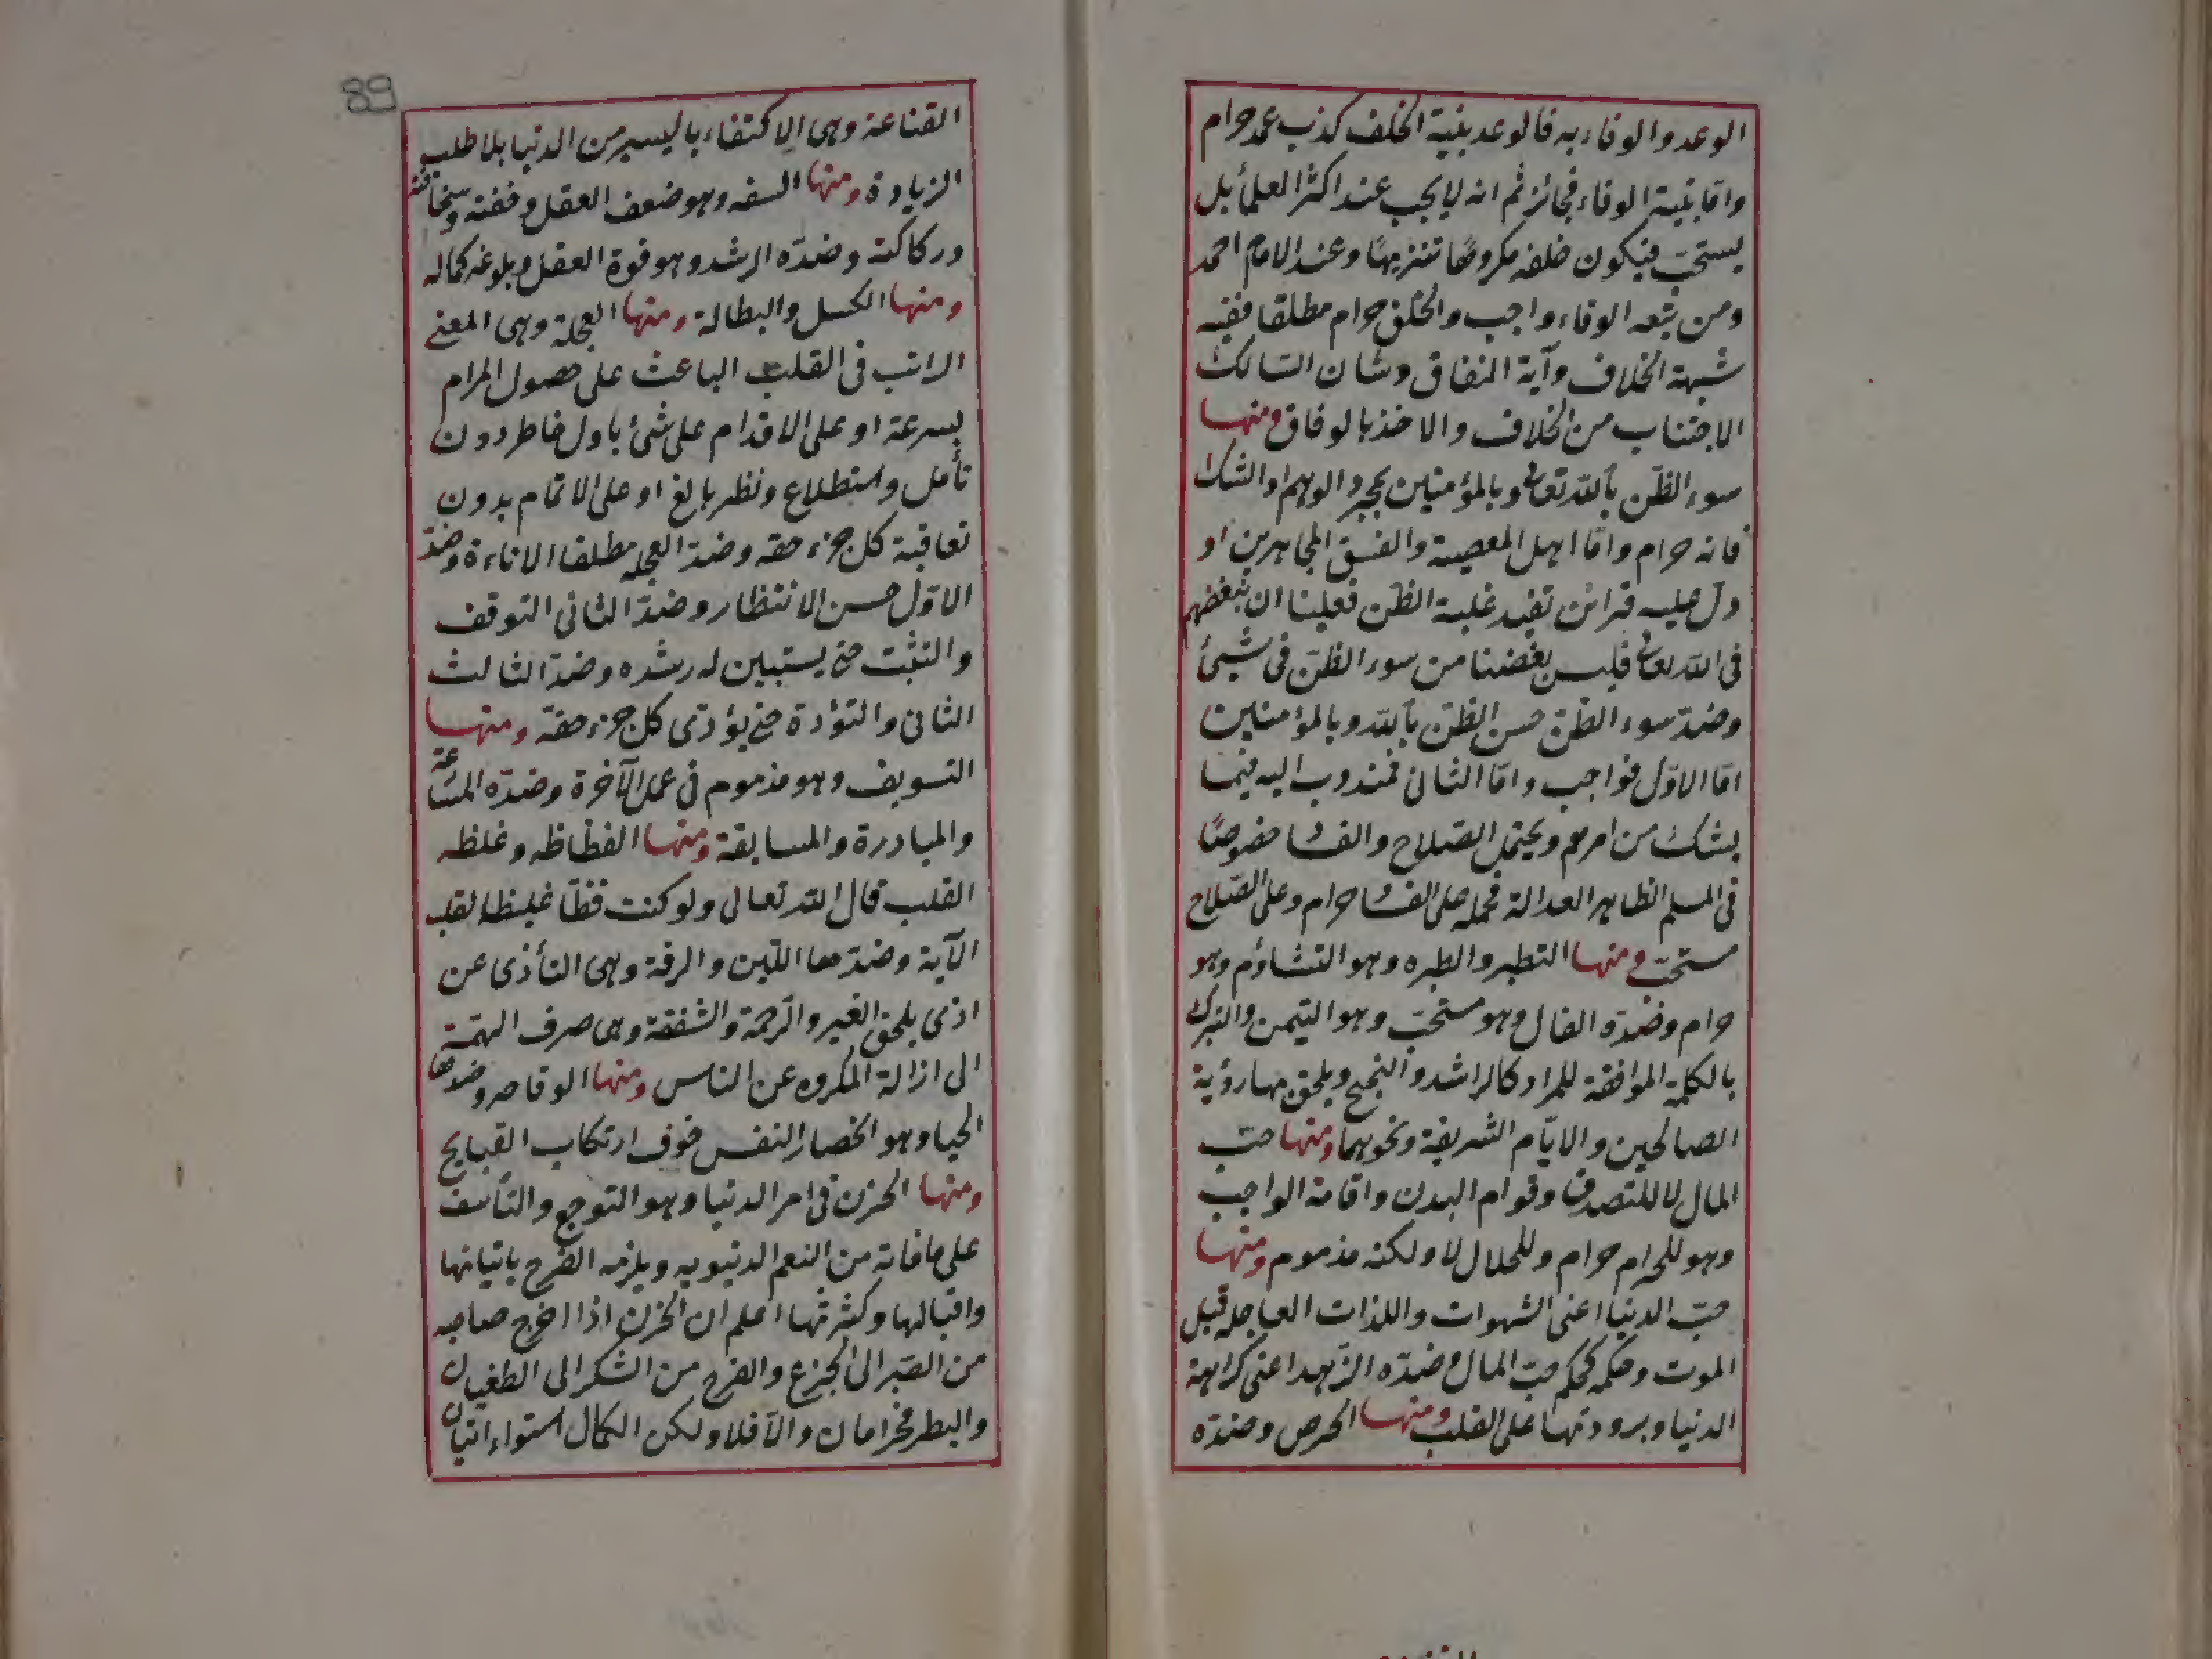 الوعد والوفاء به فالوعد بنية الخلف كذب عمد حرام
وامّا بنية الوفاء فجائز ثم انه لا يجب عند اكثر العلمأ بل
يستحبّ فيكون خلفه مكروهًا تنزيهًا وعند الامام احمد
ومن تبعه الوفاء واجب والخلف حرام مطلقا ففيه
شبهة الخلاف وآية النفاق وشان السالك
الاجتناب من الخلاف والاخذ بالوفاق ومنها
سوء الظنّ بالله تعالى وبالمؤمنين بمجرد الوهم او الشك
فانه حرام وامّا اهل المعصية والفسق المجاهرين او
دل عليه قرائن تفيد غلبة الظن فعلينا ان نبغضهم
فى الله تعالى فليس بغضنا من سوء الظنّ فى شيئ
وضدّ سوء الظنّ حسن الظنّ بالله وبالمؤمنين
امّا الاوّل فواجب وامّا الثانى فمندوب اليه فيما
يشك من امرهم ويحتمل الصّلاح والفساد خصوصًا
فى المسلم الظاهر العدالة فحمله على الفساد حرام وعلى الصّلاح
مستحبّ ومنها التطير والطيره وهو التشاؤم وهو
حرام وضدّه الفال وهو مستحبّ وهو التيمن والتبرك
بالكلمة الموافقة للمراد كالراشد والنجيح ويلحق بها رؤية
الصالحين والايّام الشريفة ونحوهما ومنها حبّ
المال لا للتصدق وقوام البدن واقامة الواجب
وهو للحرام حرام وللحلال لا ولكنه مذموم ومنها
حبّ الدنيا اعنى الشهوات واللذات العاجله قبل
الموت وحكمه كحكم حبّ المال وضدّه الزّهد اعنى كراهة
الدنيا وبرودتها على القلب ومنها الحرص وضدّه
89
القناعة وهى الاكتفاء باليسير من الدنيا بلا طلب
الزيادة ومنها السفه وهو ضعف العقل وخفته وسخافته
وركاكته وضدّه الرشد وهو قوة العقل وبلوغه كماله
ومنها الكسل والبطالة ومنها العجلة وهى المعنى
الراتب فى القلب الباعث على حصول المرام
بسرعة او على الاقدام على شئ باول خاطر دون
تأمل واستطلاع ونظر بالغ او على الاتمام بدون
تعاقبة كل جزء حقه وضدّ العجله مطلقا الاناءة وضدّ
الاوّل حسن الانتظار وضدّ الثانى التوقف
والتثبّت حتى يستبين له رشده وضدّ الثالث
الثانى والتؤدة حتى يؤدّى كل جزء حقه ومنها
التسويف وهو مذموم فى عمل الآخرة وضدّه المسارعة
والمبادرة والمسابقة ومنها الفظاظه وغلظه
القلب قال الله تعالى ولو كنت فظّا غليظ القلب
الآية وضدّهما اللّين والرقة وهى التأذى عن
اذى يلحق الغير والرّحمة والشفقة وهى صرف الهمّة
الى ازالة المكروه عن الناس ومنها الوقاحه وضدها
الحيا وهو انحصار النفس خوف ارتكاب القبايح
ومنها الحزن فى امر الدنيا وهو التوجع والتأسف
على ما فاته من النعم الدنيويه ويلزمه الفرح باتيانها
واقبالها وكثرتها اعلم ان الحزن اذا اخرج صاحبه
من الصّبر الى الجزع والفرح من الشكر الى الطغيان
والبطر فحرامان والّا فلا ولكن الكمال استواء اتيان